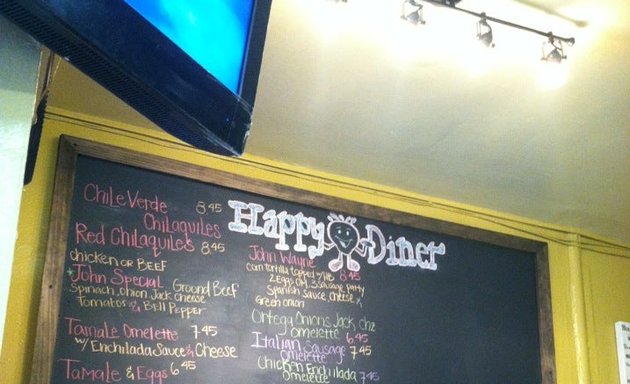 Happy Diner
Chile Verde 8.45
Chilaquiles
Red Chilaquiles 8.45
Chicken or BEEF
*John Special Ground Beef
Spinach, Onion, Jack Cheese
Tomatos & Bell Pepper
Tamale Omelette 7.45
w/ Enchilada Sauce & Cheese
Tamale & Eggs 6.45
John Wayne
Corn tortilla topped w/ HB 8.45
2 Eggs O.M, Sausage Patty
Spanish Sauce, Cheese
Green Onion
Ortega Onions Jack chz
Omelette 6.45
Italian Sausage 7.45
Omelette
Chicken Enchilada
Omelette 7.45